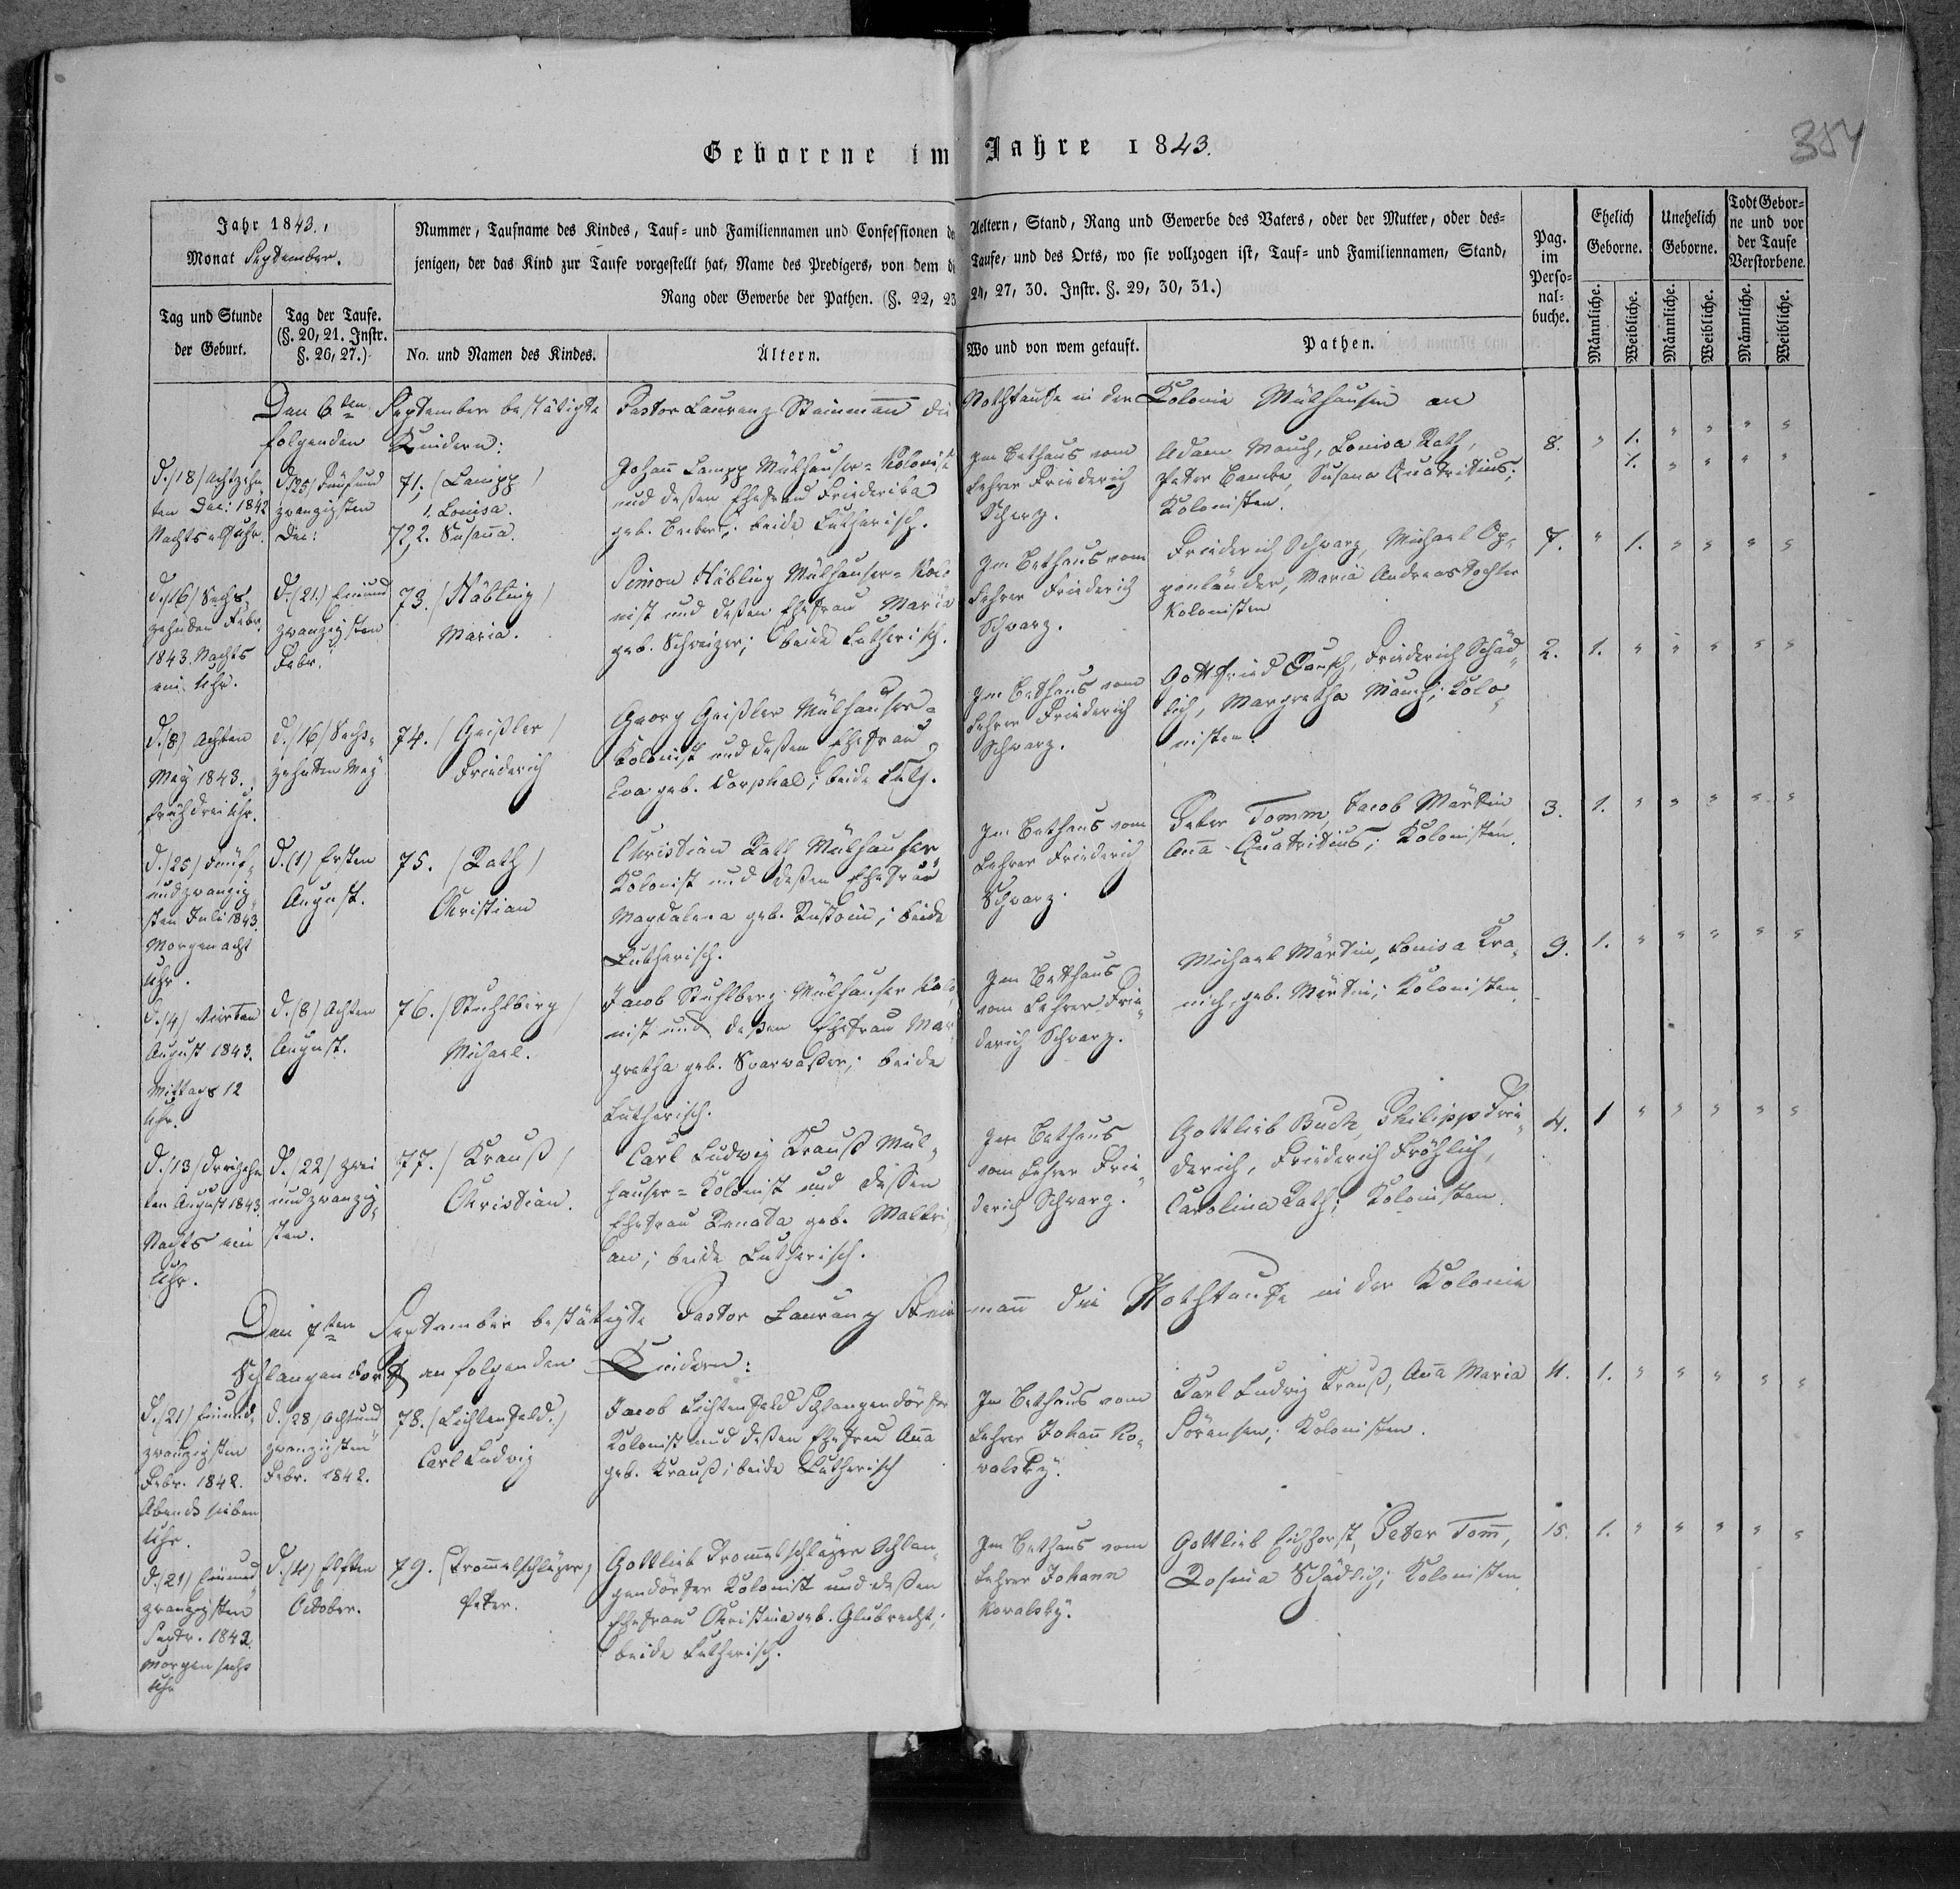 Geborene im Jahre 1843.
354
Jahr 1843.,
Monat September.
Nummer, Taufname des Kindes, Tauf- und Familiennamen und Confessionen der Aeltern, Stand, Rang und Gewerbe des Vaters, oder der Mutter, oder des-
jenigen, der das Kind zur Taufe vorgestellt hat, Name des Predigers, von dem di Taufe, und des Orts, wo sie vollzogen ist, Tauf- und Familiennamen, Stand,
Rang oder Gewerbe der Pathen. (§. 22, 23 24, 27, 30. Instr. §. 29, 30, 31.)
Pag.
im
Perso-
nal-
buche.
Ehelich
Geborne.
Unehelich
Geborne.
Todt Gebor-
ne und vor
der Taufe
Verstorbene.
Tag und Stunde
der Geburt.
Tag der Taufe.
(§. 20, 21. Instr.
§. 26, 27.)
No. und Namen des Kindes.
Ältern.
Wo und von wem getauft.
Pathen.
Männliche.
Weibliche.
Männliche.
Weibliche.
Männliche.
Weibliche.
Den 6ten September bestätigte Pastor Laurenz Steinmann die Nothtaufe in der Kolonie Mülhausen an
folgenden Kindern:
D. (18) Achtzehn
ten Dec: 1842
Nachts elf Uhr.
D. (25) Fünfund
zwanzigsten
Dec:
71. (Lampp)
1. Louisa.
72, 2. Susanna.
Johann Lampp Mülhauser-Kolonist
und deßen Ehefrau Friederika
geb. ; beide Lutherisch.
Im Bethaus vom
Lehrer Friederich
Schwarz.
Adam Mauch, Louisa Rath,
Peter , Susana Quatridius;
Kolonisten.
8. " 1. " " " "
1. " " " "
D. (16) Sechs
zehnden Febr.
1843. Nachts
ein Uhr.
D. (21) Einund
zwanzigsten
Febr.
73. (Häbling)
Maria.
Simon Häbling Mülhauser-Kolo
nist und deßen Ehefrau Maria
geb. Schweizer; beide Lutherisch.
Im Bethaus vom
Lehrer Friederich
Schwarz.
Friederich Schwarz, Michael Op-
penländer, Maria Andreas Tochter
Kolonisten
7. " 1. " " " "
D. (8) Achten
May 1843.
früh drei Uhr.
D. (16) Sechs-
zehnten May
74. (Geißler)
Friederich
Georg Geißler Mülhauser-
Kolonist und deßen Ehefrau
Eva geb. Dorphal; beide Luth.
Im Bethaus vom
Lehrer Friederich
Schwarz.
Gottfried , Friederich Schäd-
lich, Margretha Mauch; Kolo-
nisten.
2. 1. " " " " "
D. (25) Fünf-
undzwanzig-
sten Juli 1843.
Morgen acht
Uhr.
D. (1) Ersten
August.
75. (Rath)
Christian
Christian Rath Mülhauser
Kolonist und deßen Ehefrau
Magdalena geb. ; beide
Lutherisch.
Im Bethaus vom
Lehrer Friederich
Schwarz.
Peter Tomm, Jacob Märtin
Anna Quatridius; Kolonisten.
3. 1. " " " " "
D. (4) Vierten
August 1843.
Mittags 12
Uhr.
D. (8) Achten
August.
76. (Stuhlberg)
Michael.
Jacob Stuhlberg Mülhauser Kolo
nist und deßen Ehefrau Mar
gretha geb. Sparwaßer; beide
Lutherisch.
Im Bethaus
vom Lehrer Frie-
derich Schwarz.
Michael Märtin, Louisa Kra-
nich, geb. Märtin; Kolonisten.
9. 1. " " " " "
D. (13) Dreizehn
ten August 1843
Nachts ein
Uhr.
D. (22) zwei
undzwanzig-
sten.
77. (Krauß)
Christian.
Carl Ludwig Krauß Mül-
hauser-Kolonist und dessen
Ehefrau Renata geb. Maltri
an; beide Lutherisch.
Im Bethaus
vom Lehrer Frie-
derich Schwarz.
Gottlieb Buch, Philipp Frie-
derich, Friederich Fröhlich,
Carolina Rath; Kolonisten.
4. 1 " " " " "
Den 7ten September bestätigte Pastor Laurenz Steinmann die Nothtaufe in der Kolonie
Schlangendorf an folgenden Kindern:
D. (21) Einund-
zwanzigsten
Febr. 1842.
Abends sieben
Uhr.
D. (28) Achtund
zwanzigsten
Febr. 1842.
78. (Lichtenfeld.)
Carl Ludwig
Jacob Lichtenfeld Schlangendörfer
Kolonist und deßen Ehefrau Anna
geb. Krauß; beide Lutherisch
Im Bethaus vom
Lehrer Johann Ko-
walsky.
Karl Ludwig Krauß, Anna Maria
Sörensen; Kolonisten.
11. 1. " " " " "
D. (21) Einund
zwanzigsten
Septr. 1842.
Morgen sechs
Uhr
D. (11) Elften
October.
79. (Trommelschläger)
Peter.
Gottlieb Trommelschläger Schlan-
gendörfer Kolonist und deßen
Ehefrau Christina geb. Glubrecht;
beide Lutherisch.
Im Bethaus vom
Lehrer Johann
Kowalsky.
Gottlieb Eichhorst, Peter Tomm,
Rosina Schädlich; Kolonisten.
15. 1. " " " " "